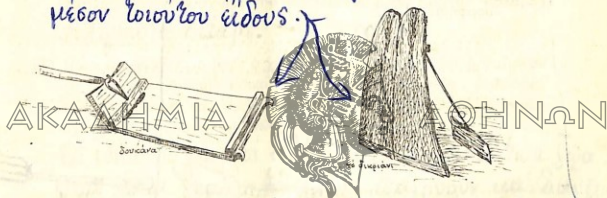 μέσον τοιούτου είδους.
ΑΚΑΔΗΜΙΑ ΑΘΗΝΩΝ
δουκάνα
το δικριάνι